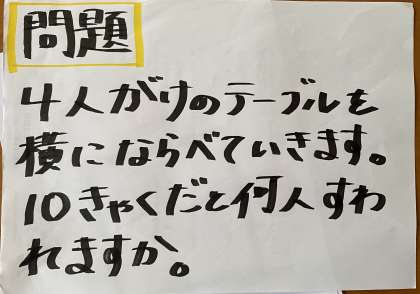 問題
4人がけのテーブルを
横にならべていきます。
10きゃくだと何人すわ
れますか。